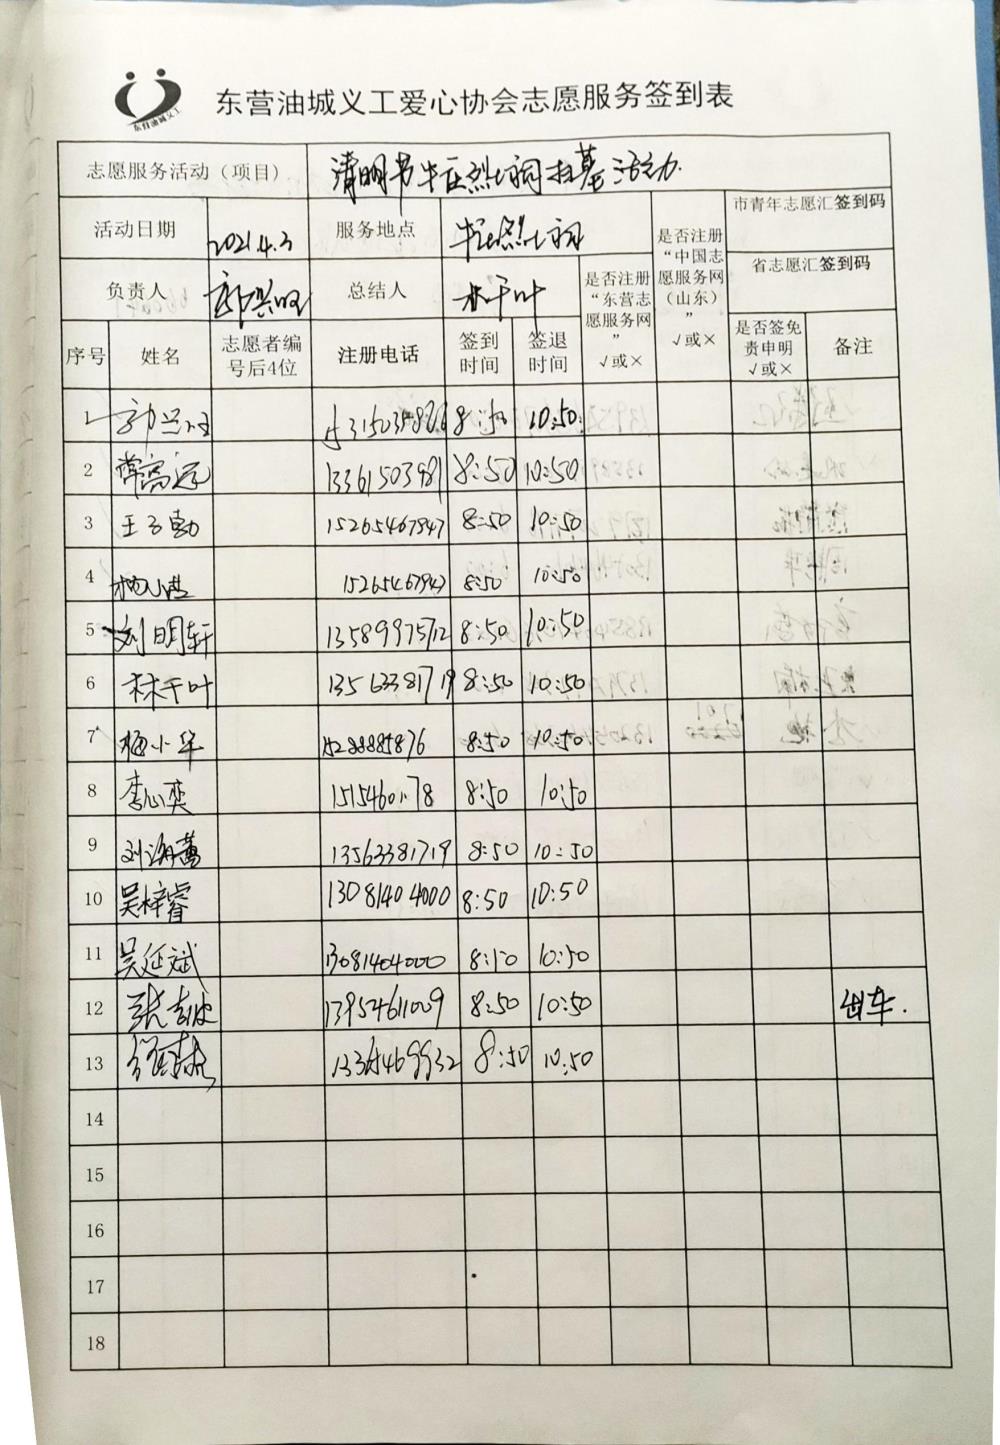 东营油城义工
东营油城义工爱心协会志愿服务签到表
志愿服务活动（项目） 清明节牛庄烈士祠扫墓活动
活动日期 2021.4.3 服务地点 牛庄烈士祠
负责人 总结人 林千叶
是否注册“东营志愿服务网” √或×
是否注册“中国志愿服务网（山东）” √或×
市青年志愿汇签到码
省志愿汇签到码
序号 姓名 志愿者编号后4位 注册电话 签到时间 签退时间 是否签免责申明 √或× 备注
1 8:50 10:50
2 常高远 13361503981 8:50 10:50
3 王子勋 15265467947 8:50 10:50
4 15265467947 8:50 10:50
5 刘明轩 13589975712 8:50 10:50
6 林千叶 13563381719 8:50 10:50
7 梅小华 15288885876 8:50 10:50
8 李心奕 8:50 10:50
9 刘海萱 13563381719 8:50 10:50
10 吴梓睿 13081404000 8:50 10:50
11 吴延斌 13081404000 8:50 10:50
12 13954611009 8:50 10:50 出车.
13 8:50 10:50
14
15
16
17
18